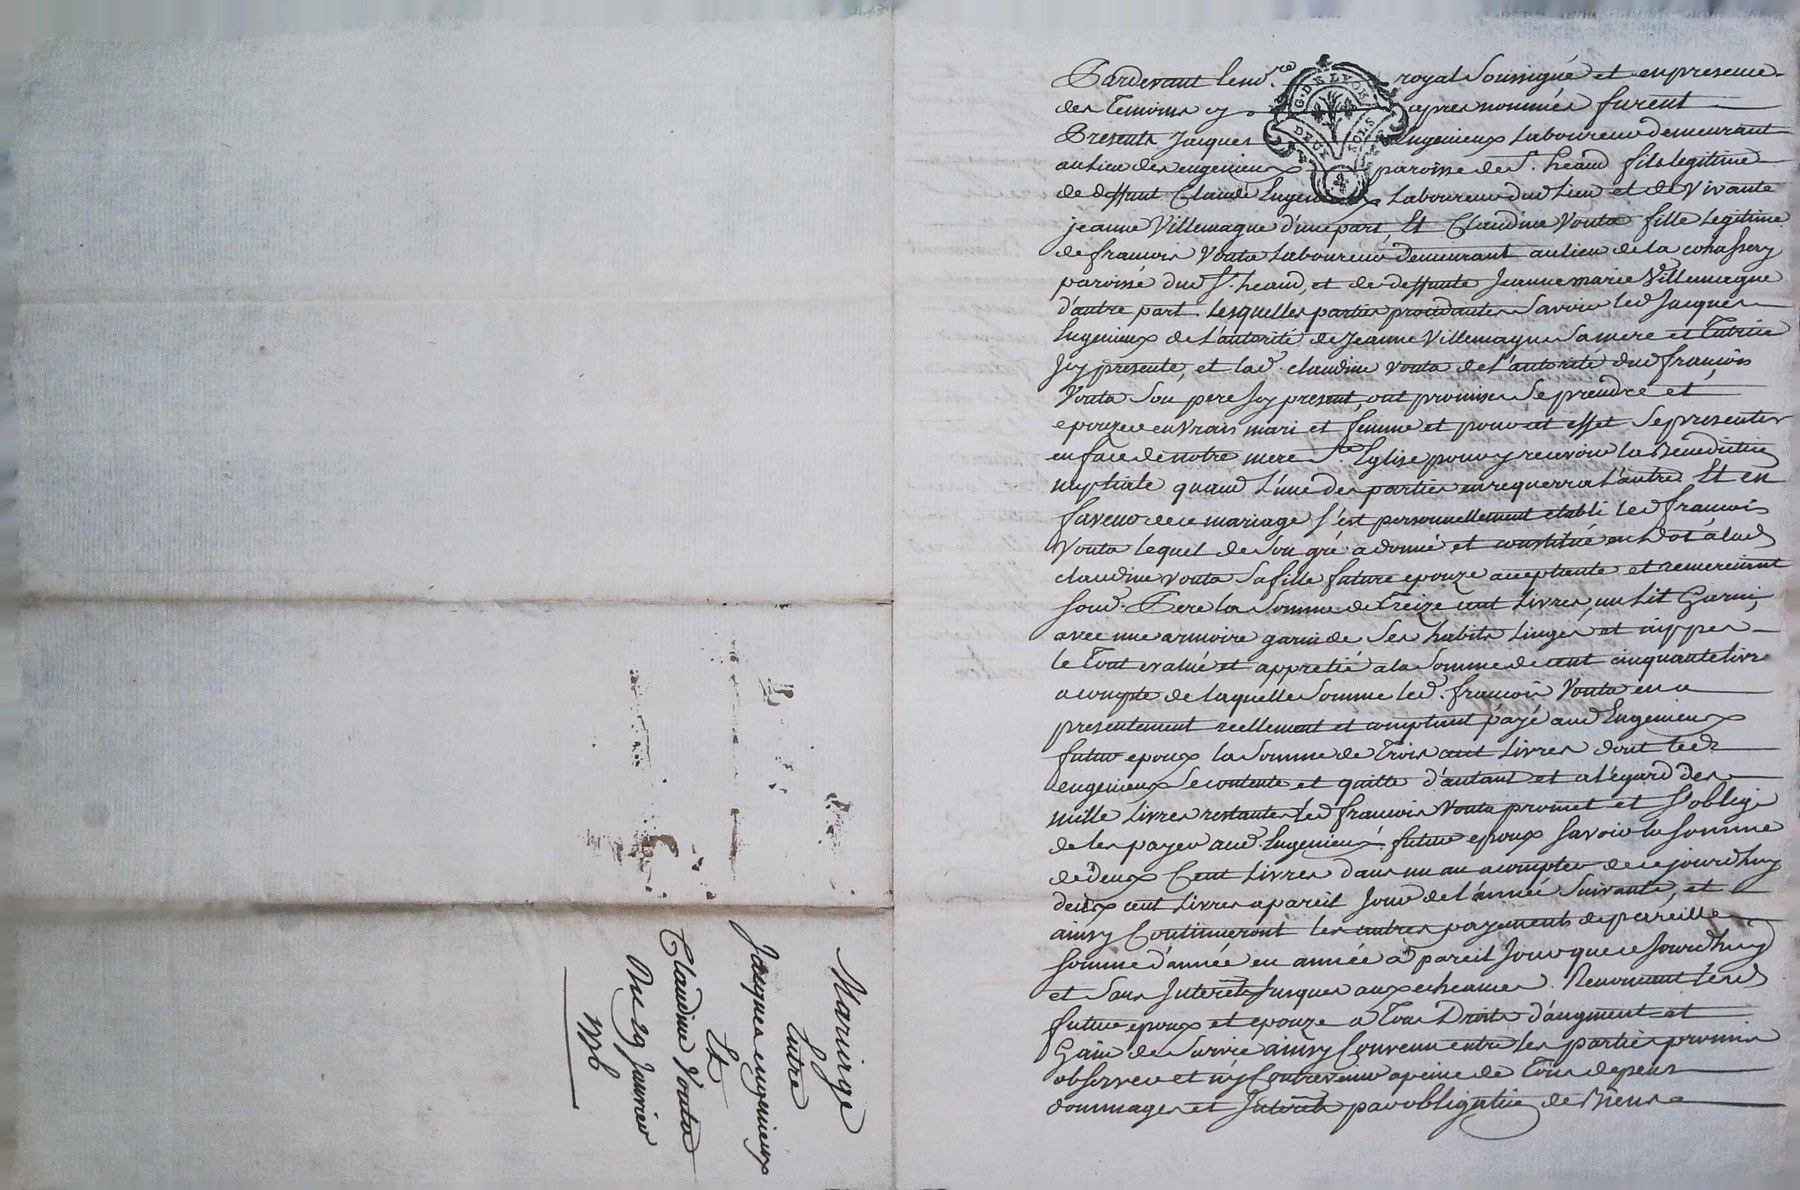 Mariage
Entre
Jacques engenieux
Et
Claudine Vouta
Du 29 Janvier
Pardevant le no.re royal Soussigné et en presence
des temoins cy apres nommés furent
Presents Jacques Engenieux Laboureur demeurant
au lieu des engenieux paroisse de S.t heand fils legitime
de deffunt Claude Engenieux Laboureur dud lieu et de vivante
jeanne Villemagne d'une part, Et Claudine Vouta fille Legitime
de francois Vouta Laboureur demeurant au lieu de la
paroisse dud S.t heand, et de deffunte Jeanne marie Villemagne
d'autre part. Lesquelles parties procedantes Savoir led Jacques
Engenieux de L'autorité de Jeanne Villemagne Sa mere et Tutrice
Icy presente, et lad. claudine Vouta de L'autorité dud francois
Vouta Son pere Icy present, ont promis Se prendre et
epouzer en vrais mari et femme et pour cet effet Se presenter
en face de notre mere S.te Eglise pour y recevoir la Benediction
nuptiale quand L'une des parties en requerra L'autre. Et en
faveur de ce mariage S'est personnellement etabli led francois
Vouta lequel de Son gré a donné et constitué en Dot à lad
claudine Vouta Sa fille future epouze acceptante et remerciant
Sond. Pere la Somme de Treize cent Livres, un Lit Garni,
avec une armoire garnie de Ses habits Linges et nippes
le Tout evalué et appretié a la Somme de cent cinquante livre
a compte de laquelle Somme led. francois Vouta en a
presentement reellement et comptant payé aud Engenieux
futur epoux la Somme de Trois cent Livres dont led
engenieux Se contente et quitte d'autant et a l'egard des
mille Livres restantes led francois Vouta promet et S'oblige
de les payer aud. Engenieux futur epoux Savoir la Somme
de deux Cent Livres dans un an a compter de cejourd'huy
deux cent Livres a pareil Jour de l'année Suivante, et
ainsy Continueront les autres payements de pareille
Somme d'année en année à pareil Jour que cejourd'huy
et Sans Interêts Jusques aux echeances. Renoncant lesd
futur epoux et epouze a Tous Droits d'augment et
Gain de Survie ainsy Convenu entre les parties promis
observer et n'y Contrevenir a peine de Tous depens
dommages et Interêts par obligation de Biens
G. DE LYON
DEUX SOLS